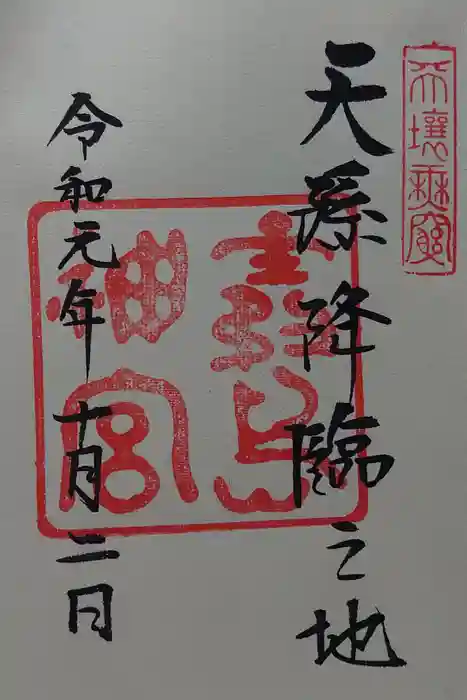 天壤無窮
天孫降臨之地
神宮
令和元年十月二日